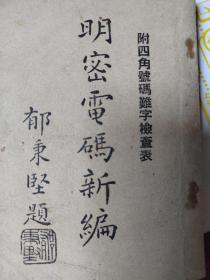 附四角號碼難字檢查表
明密電碼新編
郁秉堅題